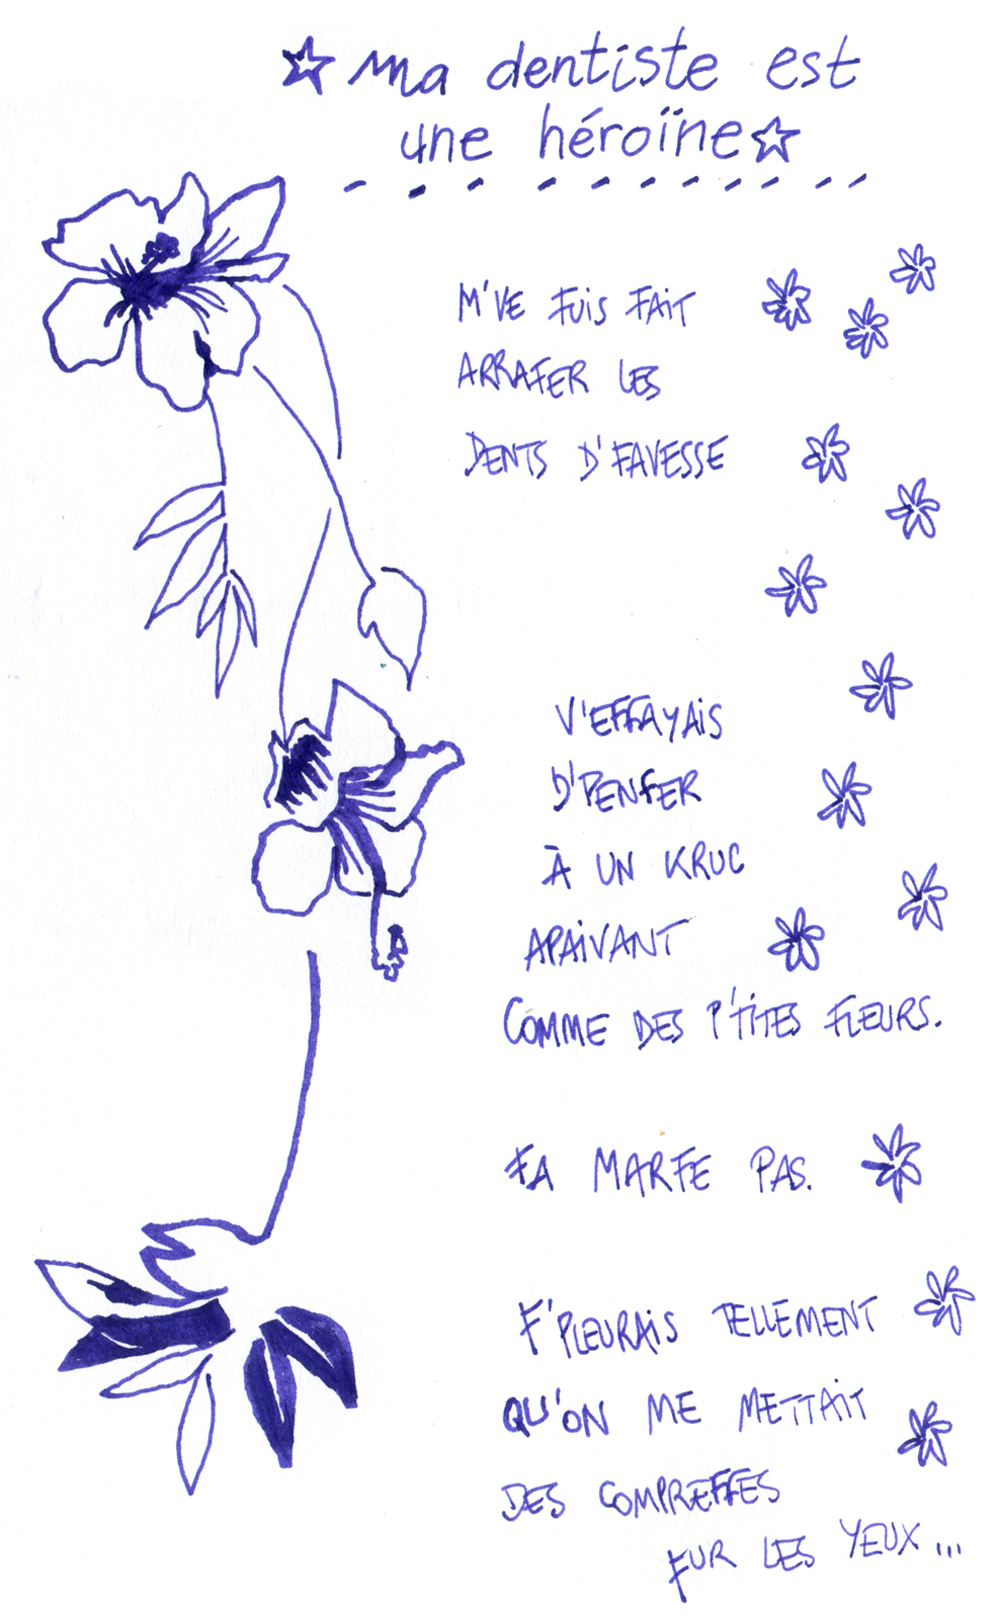 Ma dentiste est
une héroïne
M'VE FUIS FAIT
ARRAFER LES
DENTS D'FAVESSE
V'EFFAYAIS
D'PENFER
À UN KRUC
APAIVANT
COMME DES P'TITES FLEURS.
FA MARFE PAS.
F'PLEURAIS TELLEMENT
QU'ON ME METTAIT
DES COMPREFFES
FUR LES YEUX...